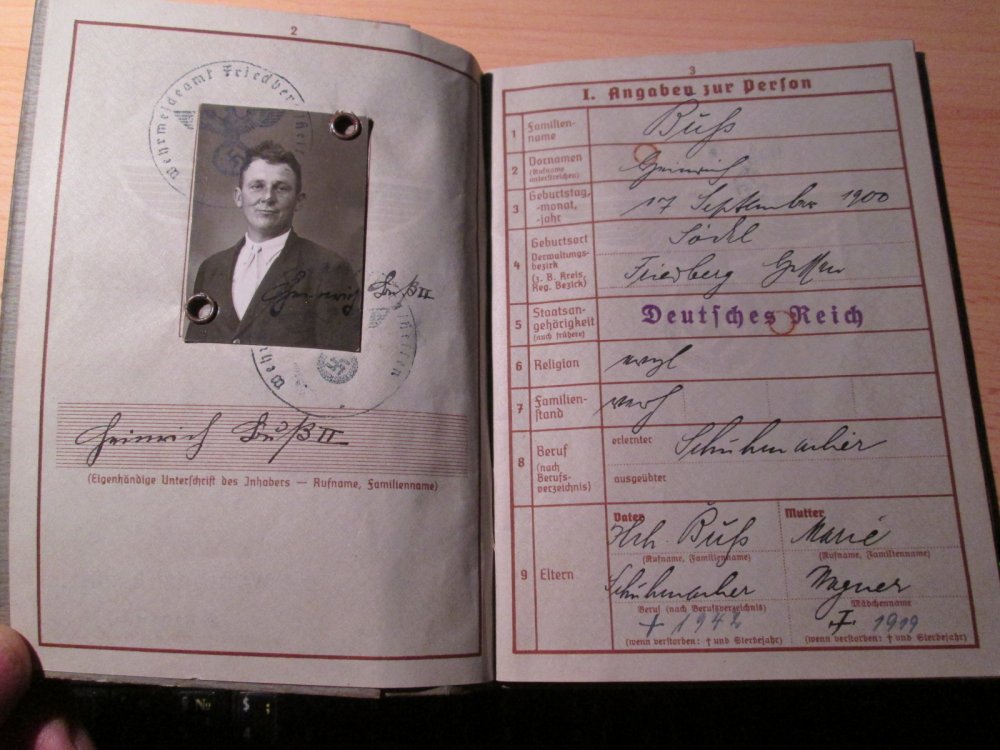 2
Wehrmeldeamt Friedber
Heinrich Buß II
Heinrich Buß II
(Eigenhändige Unterschrift des Inhabers — Rufname, Familienname)
3
I. Angaben zur Person
1 Familien-
name
Buß
2 Vornamen
(Rufname
unterstreichen)
Heinrich
3 Geburtstag,
-monat,
-jahr
17 September 1900
4 Geburtsort
Verwaltungs-
bezirk
(z. B. Kreis,
Reg. Bezirk)
Södel
Friedberg Hessen
5 Staatsan-
gehörigkeit
(auch frühere)
Deutsches Reich
6 Religion
evgl
7 Familien-
stand
verh
8 Beruf
(nach
Berufs-
verzeichnis)
erlernter
Schuhmacher
ausgeübter
9 Eltern
Vater
Hch. Buß
(Rufname, Familienname)
Schuhmacher
Beruf (nach Berufsverzeichnis)
† 1942
(wenn verstorben: † und Sterbejahr)
Mutter
Marie
(Rufname, Familienname)
Wagner
Mädchenname
† 1919
(wenn verstorben: † und Sterbejahr)
№ $ ;